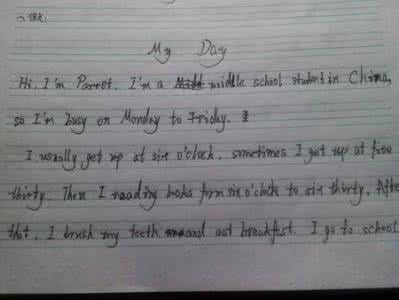 一、作文:
My Day
Hi, I'm Parrot. I'm a middle school student in China,
so I'm busy on Monday to Friday.
I usually get up at six o'clock, sometimes I get up at five
thirty. Then I reading books form six o'clock to six thirty. Afte
that, I brush my teeth and eat breakfast. I go to school